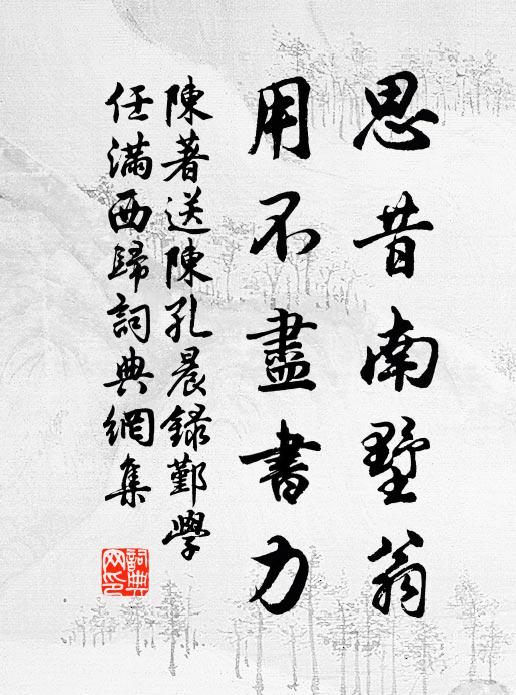 思昔南墅翁
用不盡書力
陳著送陳孔晨錄鄞學
任滿西歸詞典網集
詞典網印